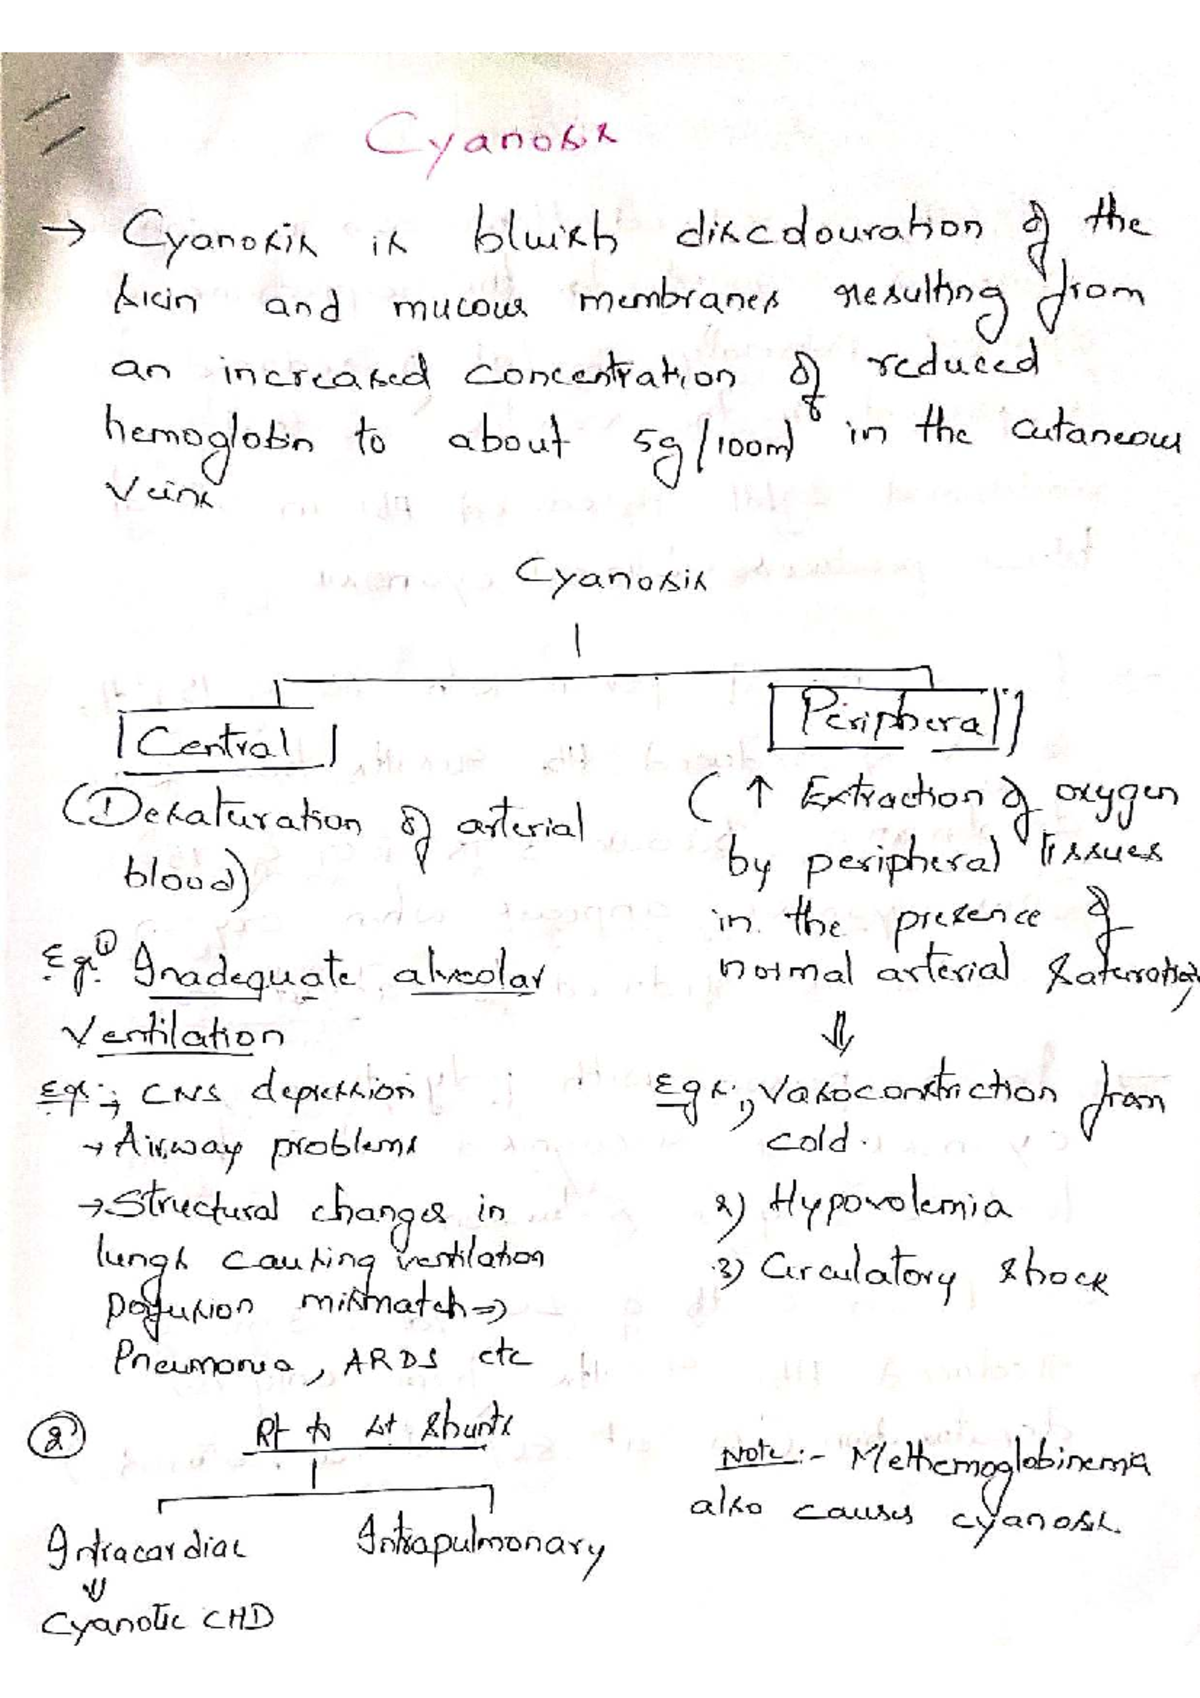 Cyanosis
→ Cyanosis is bluish discolouration of the
skin and mucous membranes resulting from
an increased concentration of reduced
hemoglobin to about 5g/100ml in the cutaneous
veins
Cyanosis
Central
(Desaturation of arterial
blood)
Eg: ① Inadequate alveolar
ventilation
Eg:- → CNS depression
→ Airway problems
→ Structural changes in
lungs causing ventilation
perfusion mismatch ⇒
Pneumonia, ARDS etc
② Rt to Lt shunts
Intracardiac Intrapulmonary
⇓
Cyanotic CHD
Peripheral
(↑ Extraction of oxygen
by peripheral tissues
in the presence of
normal arterial saturation)
⇓
Egs:- 1) Vasoconstriction from
cold.
2) Hypovolemia
3) Circulatory shock
Note:- Methemoglobinemia
also causes cyanosis.